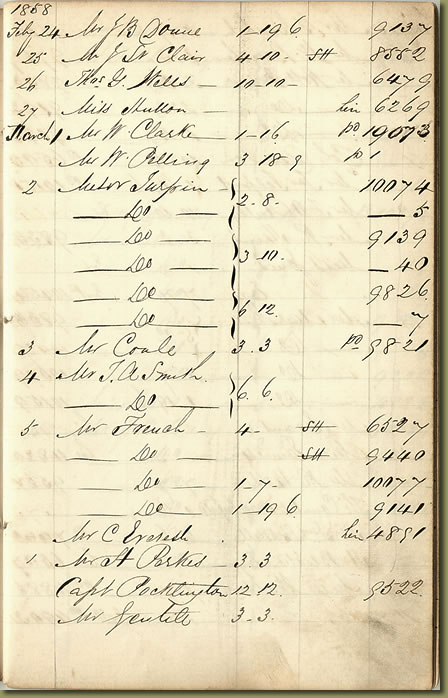 1858
Feby 24 Mr J B Donne 1-19 6 9137
25 Mr J St Clair 4-10- SH 8552
26 Thos G. Wells 10-10- 6479
27 Miss Hutton 6269
March 1 Mr W Clarke 1-16. po 19073
Mr W Pelling 3 18 9 po 1
2 Turpin 2-8. 10074
Do 5
Do 3-10. 9139
Do 40
Do 6 12. 9826
Do 7
3 Mr 3.3 po 9821
4 Mr T. A Smith. 6.6.
Do
5 Mr French 4- SH 6527
Do SH 9440
Do 1-7- 10077
Do 1-19 6 9141
Mr C 4891
1 Mr H Parkes 3.3
Capt Pocklington 12 12. 9522
Mr 3-3.